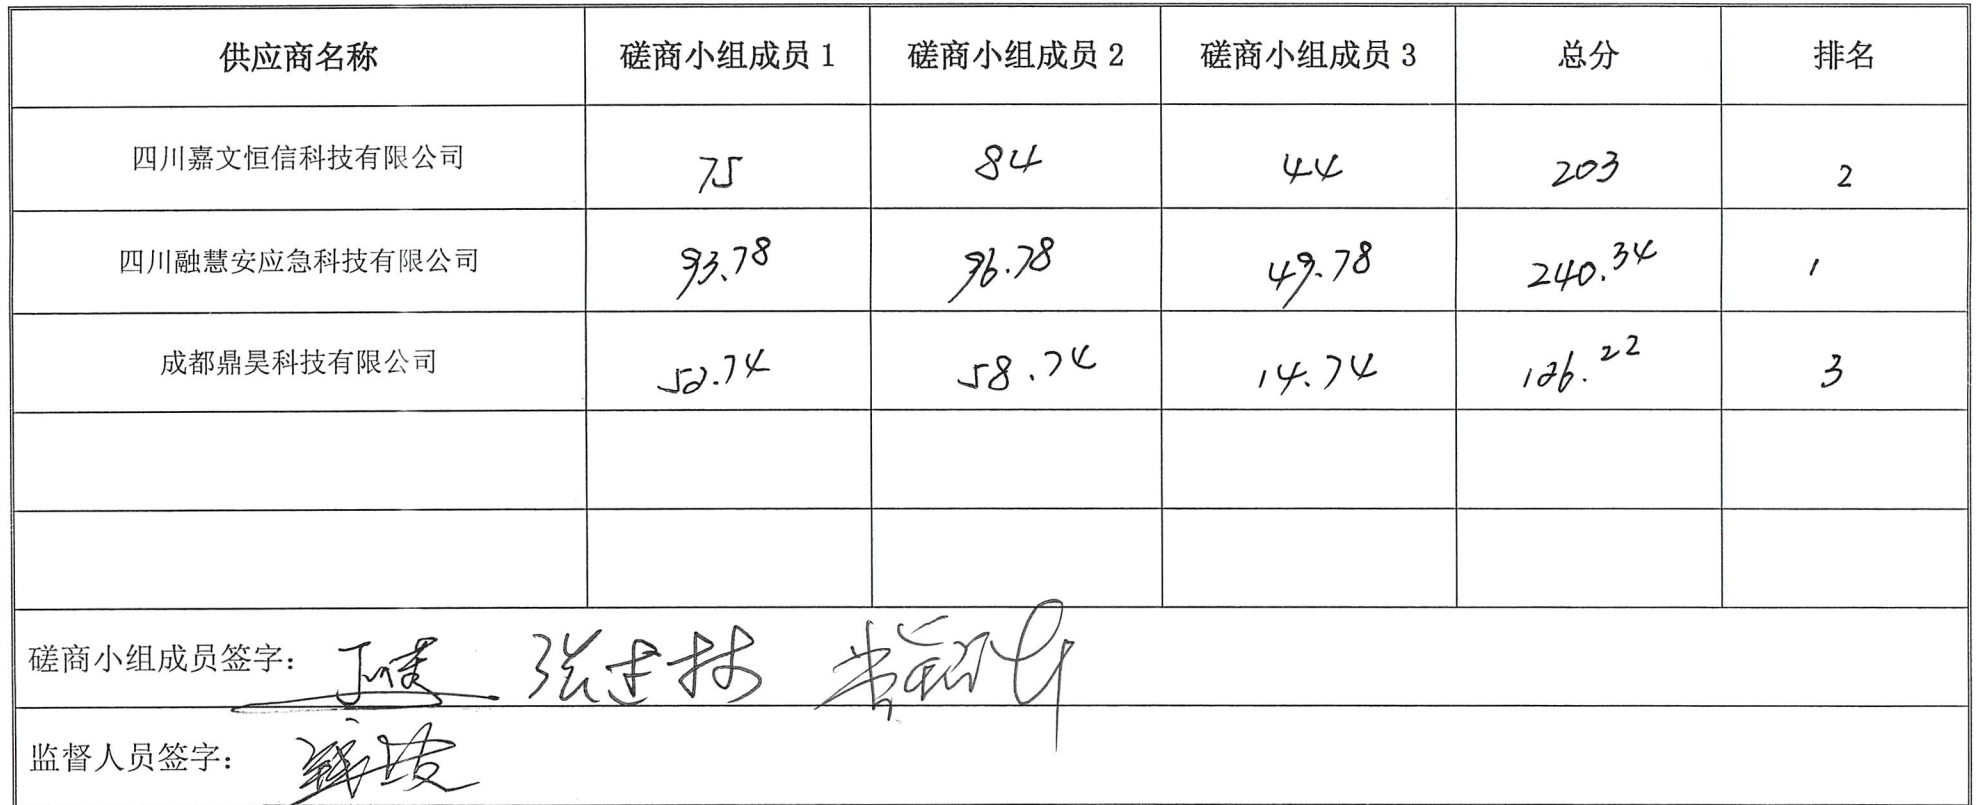 供应商名称 磋商小组成员1 磋商小组成员2 磋商小组成员3 总分 排名
四川嘉文恒信科技有限公司 75 84 44 203 2
四川融慧安应急科技有限公司 93.78 96.78 49.78 240.34 1
成都鼎昊科技有限公司 52.74 58.74 14.74 126.22 3
磋商小组成员签字： 张建林
监督人员签字：